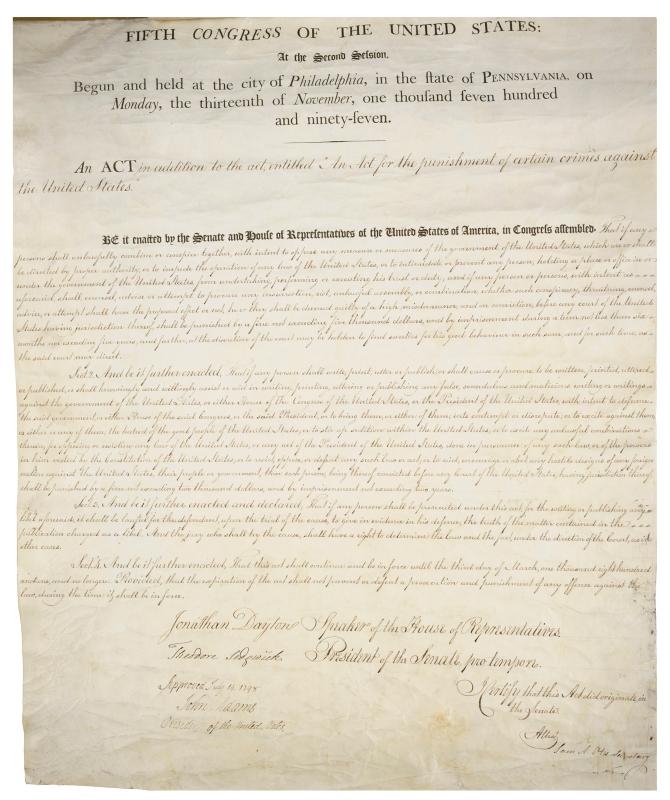 FIFTH CONGRESS OF THE UNITED STATES:
At the Second Session,
Begun and held at the city of Philadelphia, in the state of PENNSYLVANIA, on
Monday, the thirteenth of November, one thousand seven hundred
and ninety-seven.
An ACT in addition to the act, entitled "An Act for the punishment of certain crimes against
the United States."
BE it enacted by the Senate and House of Representatives of the United States of America, in Congress assembled. That if any
persons shall unlawfully combine or conspire together, with intent to oppose any measure or measures of the government of the United States, which are or shall
be directed by proper authority, or to impede the operation of any law of the United States, or to intimidate or prevent any person, holding a place or office in or
under the government of the United States, from undertaking, performing or executing his trust or duty; and if any person or persons, with intent as
aforesaid, shall counsel, advise or attempt to procure any insurrection, riot, unlawful assembly, or combination, whether such conspiracy, threatening, counsel,
advice, or attempt shall have the proposed effect or not, he or they shall be deemed guilty of a high misdemeanor, and on conviction, before any court of the United
States having jurisdiction thereof, shall be punished by a fine not exceeding five thousand dollars, and by imprisonment during a term not less than six
months nor exceeding five years; and further, at the discretion of the court may be holden to find sureties for his good behaviour in such sum, and for such time, as
the said court may direct.
Sect. 2. And be it further enacted, That if any person shall write, print, utter or publish, or shall cause or procure to be written, printed, uttered
or published, or shall knowingly and willingly assist or aid in writing, printing, uttering or publishing any false, scandalous and malicious writing or writings
against the government of the United States, or either House of the Congress of the United States, or the President of the United States, with intent to defame
the said government, or either House of the said Congress, or the said President, or to bring them, or either of them, into contempt or disrepute; or to excite against them,
or either or any of them, the hatred of the good people of the United States, or to stir up sedition within the United States, or to excite any unlawful combinations
therein, for opposing or resisting any law of the United States, or any act of the President of the United States, done in pursuance of any such law, or of the powers
in him vested by the Constitution of the United States, or to resist, oppose, or defeat any such law or act, or to aid, encourage or abet any hostile designs of any foreign
nation against the United States, their people or government, then such person, being thereof convicted before any Court of the United States, having jurisdiction thereof,
shall be punished by a fine not exceeding two thousand dollars, and by imprisonment not exceeding two years.
Sect. 3. And be it further enacted and declared, That if any person shall be prosecuted under this act, for the writing or publishing any
libel aforesaid, it shall be lawful for the defendant, upon the trial of the cause, to give in evidence in his defence, the truth of the matter contained in the
publication charged as a libel. And the jury who shall try the cause, shall have a right to determine the law and the fact, under the direction of the Court, as in
other cases.
Sect. 4. And be it further enacted, That this act shall continue and be in force until the third day of March, one thousand eight hundred
and one, and no longer: Provided, that the expiration of the act shall not prevent or defeat a prosecution and punishment of any offence against the
law, during the time it shall be in force.
Jonathan Dayton Speaker of the House of Representatives.
Theodore Sedgwick President of the Senate, pro tempore.
Approved July 14, 1798
John Adams
President of the United States
I Certify that this Act did originate in
the Senate.
Attest,
Sam A. Otis Secretary